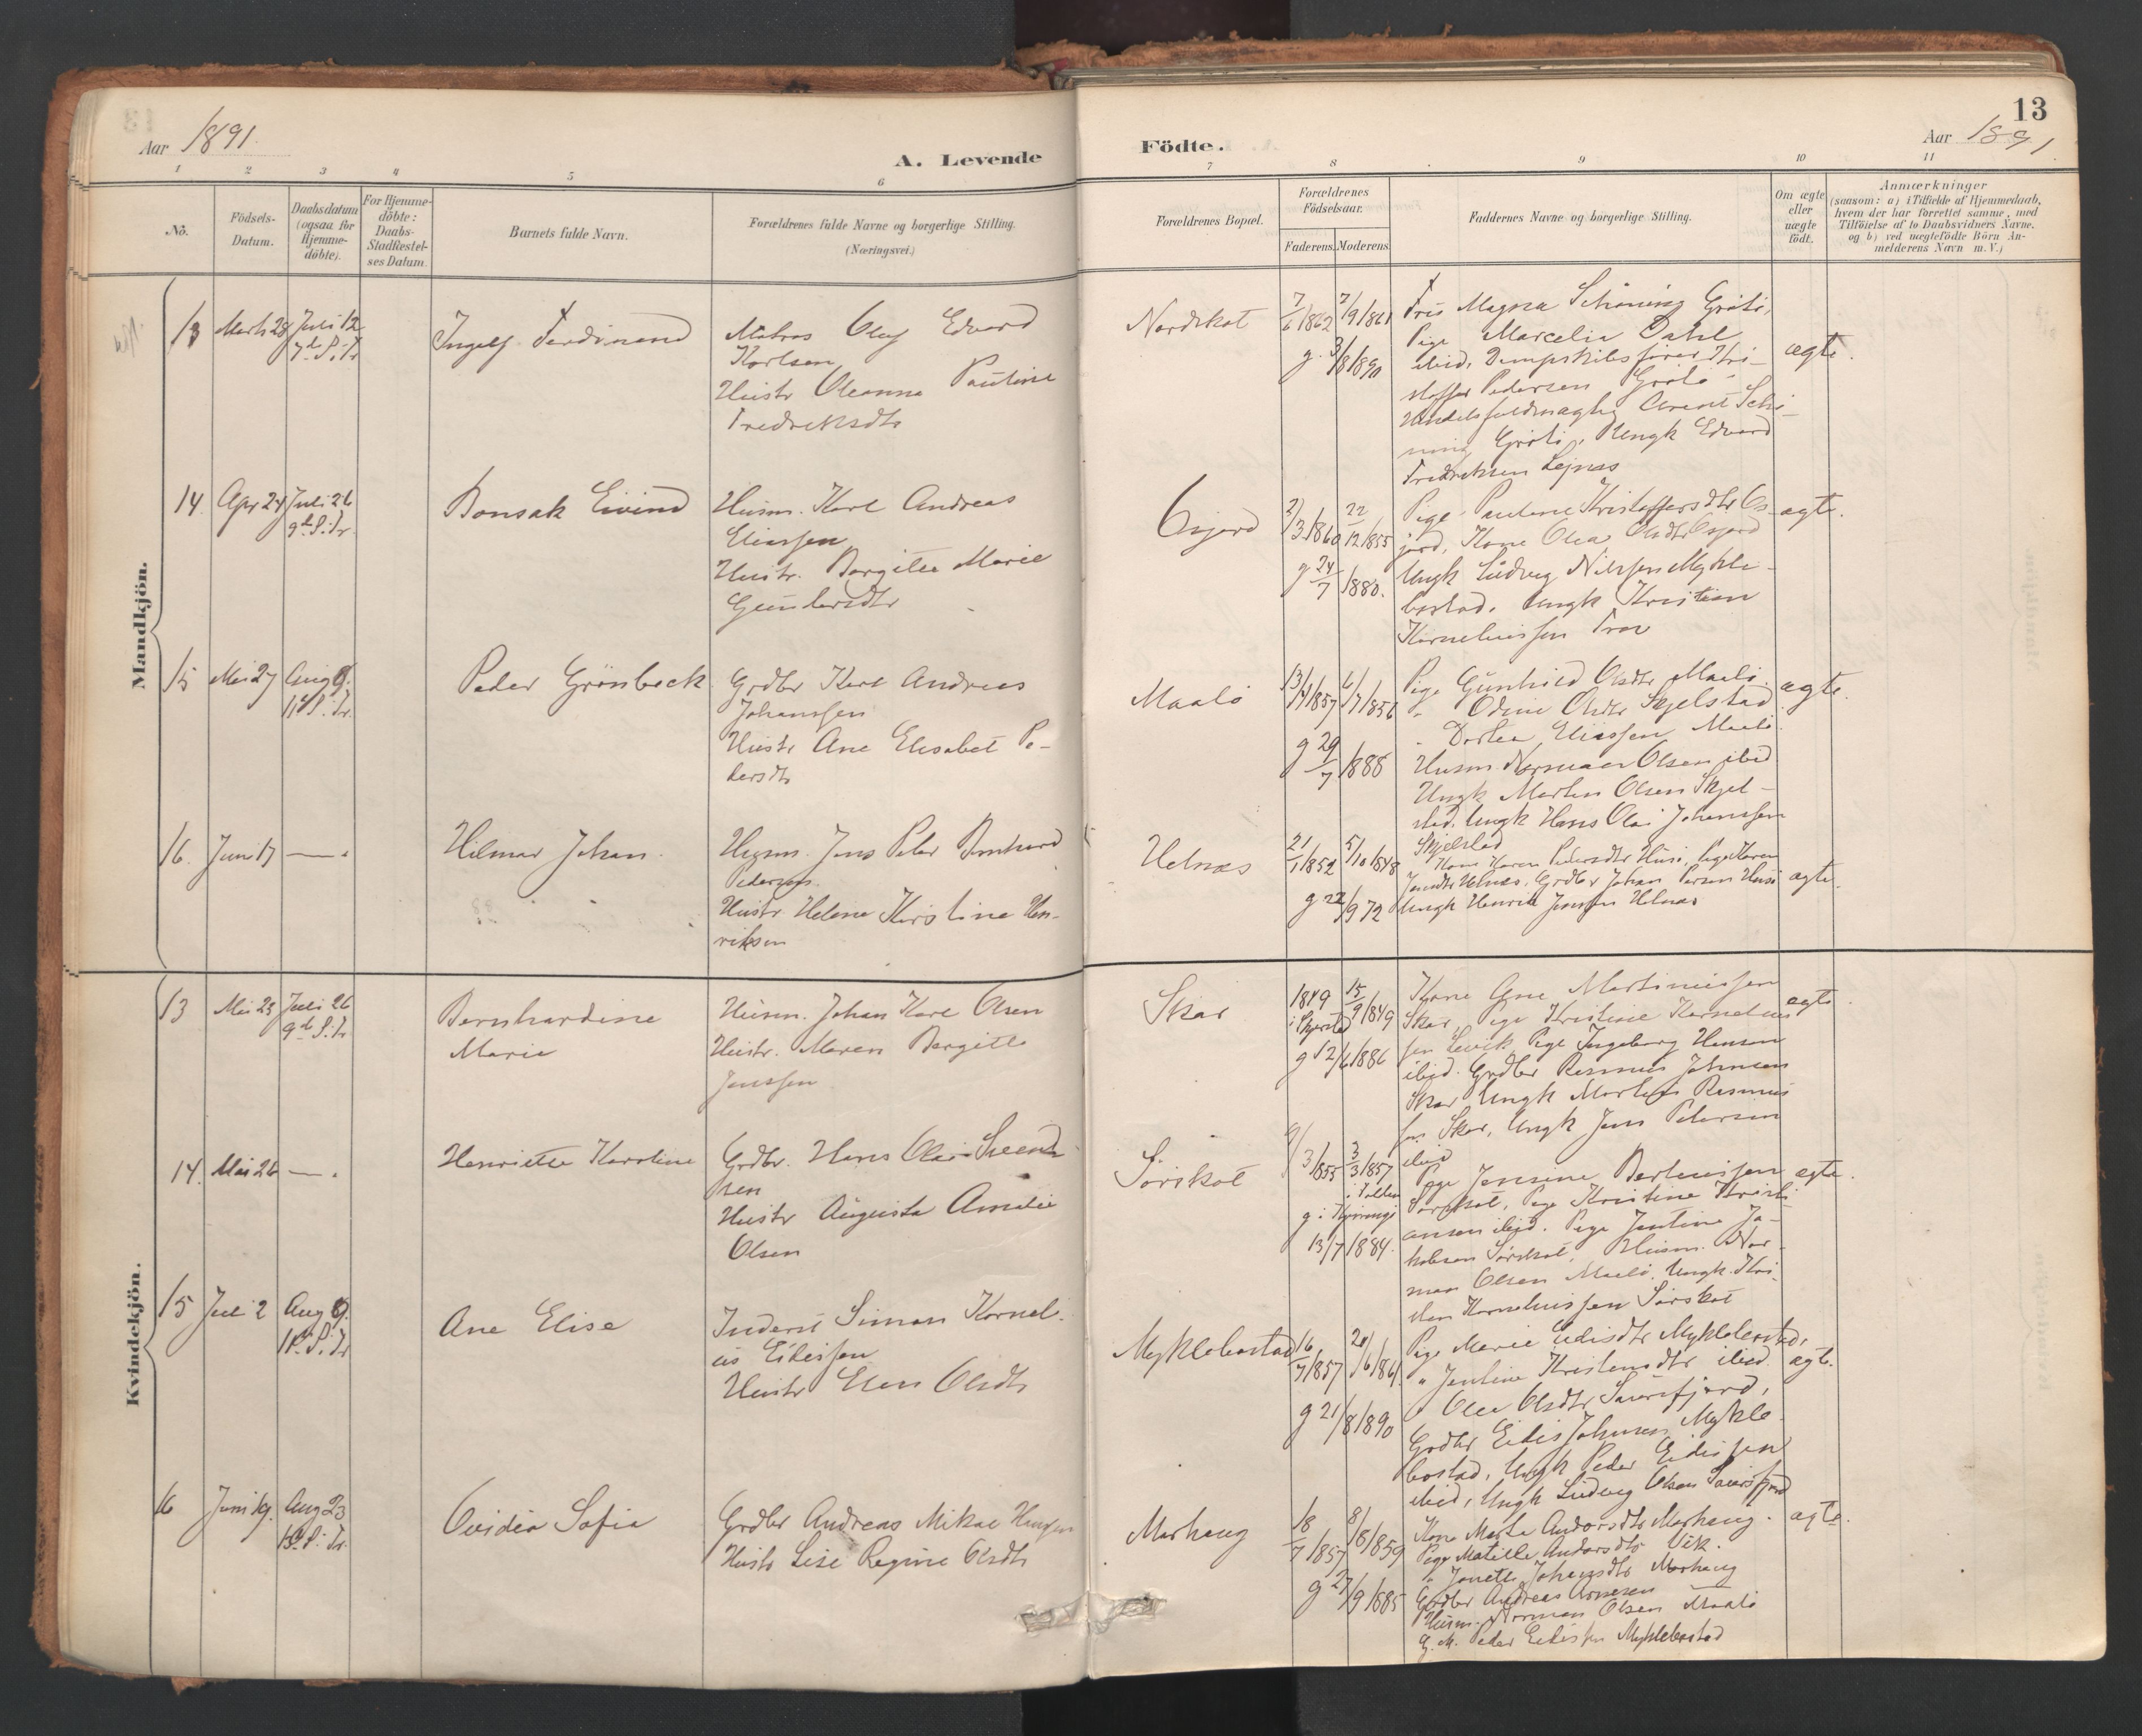 13
Aar 1891.
A. Levende
Födte.
Aar 1891.
1 2 3 4 5 6 7 8 9 10 11
No.
Födsels-
Datum.
Daabsdatum
(ogsaa for
Hjemme-
döbte).
For Hjemme-
döbte:
Daabs-
Stadfæstel-
ses Datum.
Barnets fulde Navn.
Forældrenes fulde Navne og borgerlige Stilling.
(Næringsvei.)
Forældrenes Bopæl.
Forældrenes
Födselsaar.
Faderens. Moderens.
Faddernes Navne og borgerlige Stilling.
Om ægte
eller
uægte
födt.
Anmærkninger
(saasom: a) i Tilfælde af Hjemmedaab,
hvem der har forrettet samme, med
Tilföielse af to Daabsvidners Navne,
og b) ved uægtefödte Börn An-
melderens Navn m. V.)
Mandkjön.
13 Marts 28 Juli 12
7de S. Tr.
Ingolf Ferdinand
Matros Olaf Edvard
Karlsen
Hustr Oleanna Pauline
Fredriksdtr
Nordskot
7/6 1862 7/9 1861
g. 3/8 1890
Frö Magna Schöning Grötö,
Pige Marcelia Dahl
ibid, Dampskibsförer Kri-
stoffer Pedersen Grötö
Handelsfuldmægtig Schö-
ning Grötö, Ungk Edvard
Fredriksen Lejnes
ægte.
14. Apr 24 Juli 26
9de S. Tr.
Bonsak Eivind
Husm. Karl Andreas
Eliassen
Hustr. Bergitte Marie
Gunlersdtr
Osjord
2/3 1860 22/12 1855
g 24/7 1880.
Pige Pauline Kristoffersdtr Os-
jord, Kone Olea Olsdtr Osjord
Ungk Ludvig Nilssen Mykle-
bostad. Ungk Kristian
Korneliussen
ægte.
15 Mai 27 Aug 9.
11 S. Tr.
Peder Grönbeck
Grdbr Karl Andreas
Johanssen
Hustr Ane Elisabet Pe-
dersdtr
Maalö
13/11 1857 6/7 1856
g 29/7 1888
Pige Gunhild Olsdtr Maalö.
" Odine Olsdtr Skjelstad
" Dortea Eliassen Maalö
Husm. Normann Olsen ibid
Ungk Martin Olsen Skjel-
stad. Ungk Hans Olai Johanssen
Skjelstad
ægte.
16. Juni 17 — .
Hilmar Johan.
Husm. Jens Peter Bernhard
Pedersen.
Hustr. Helene Kristine Hen-
riksen
Helnæs
21/1 1852 5/10 1848
g 22/9 72
Kone Karen Pedersdtr Husö, Pige Karen
Jensdtr Helnæs, Grdbr Johan Husö
Ungk Henrik Jenssen Helnæs
ægte.
Kvindekjön.
13 Mai 23 Juli 26
9de S. Tr
Bernhardine
Marie
Husm. Johan Karl Olsen
Hustr. Maren Bergitte
Jenssen
Skar
1849 15/9 1849
i Skjerstad
g 12/6 1886
Kone Ane Martinussen
Skar, Pige Kristine Kornelius-
sen Pige Ingeborg Hansen
ibid. Grdbr Rasmus Johnsen
Skar Ungk Rasmus-
sen Skar, Ungk Jens Petersen
ibid
ægte.
14. Mai 26 — .
Henriette Karoline
Grdbr. Hans Olai Svend-
sen
Hustr Augusta Amalie
Olsen
Sörskot
9/3 1855 3/3 1857
g i Kjærringö
13/7 1884.
Pige Jensine Bertheussen
Sörskot, Pige Kristine Kristi-
ansen ibid. Pige Jentine Ja-
kobsen Sörskot, Husm. Nor-
man Olsen Maalö. Ungk Kri-
sten Korneliussen Sörskot
ægte.
15 Juli 2 Aug 9.
11te S. Tr
Ane Elise
Inderst Simon Kornel-
ius Eidissen
Hustr Elen Olsdtr
Myklebostad
16/7 1857 20/6 1861.
g 21/8 1890
Pige Marie Eidisdtr Myklebostad,
" Jentine Kristensdtr ibid.
" Olea Olsdtr
Grdbr Eidis Johnsen Mykle-
bostad, Ungk Peder Eidissen
ibid, Ungk Ludvig Olsen
ægte.
16 Juni 19. Aug 23
13de S. Tr.
Ovidia Sofia
Grdbr Andreas Mikal Hansen
Hustr Lise Regine Olsdtr
Marhaug
18/7 1857 8/8 1859
g 27/9 1885
Kone Marta Andorsdtr Marhaug.
Pige Matilde Andorsdtr Vik.
" Janette Johansdtr Marhaug
Grdbr Andreas Arnesen
Husm. Norman Olsen Maalö
G. M. Peder Eidissen Myklebostad
ægte.